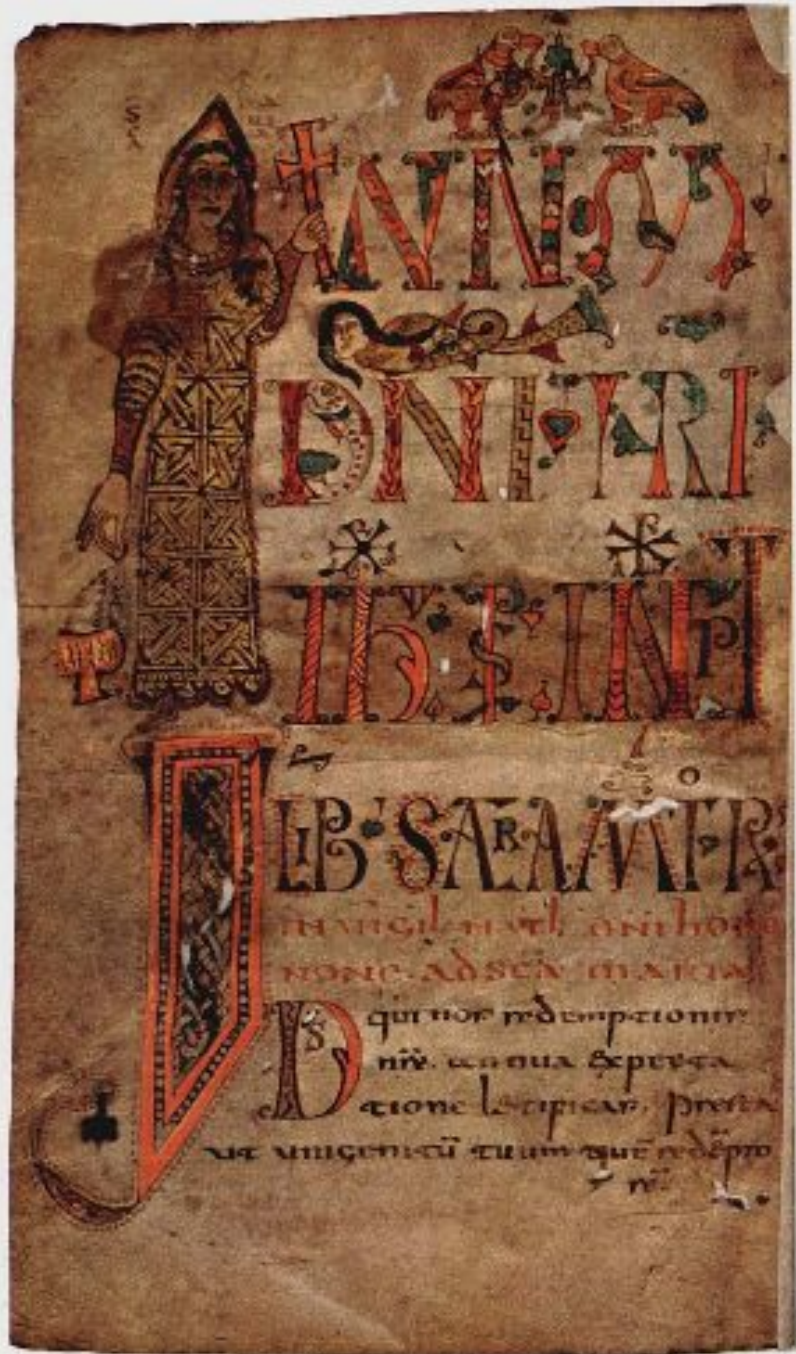 IN NOM
DNI NRI
IHU INCPT
LIB SACRAMTOR
IN VIGIL NATL DNI HORA
NONE AD SCA MARIA
DS qui nos redemptionis
nre annua expecta
tione letificas presta
ut unigenitū tuum quē redēpto
rē